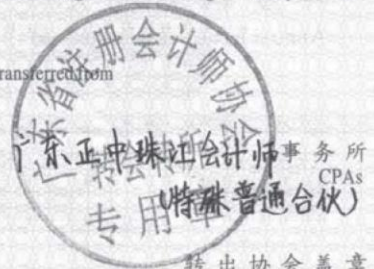 广东省注册会计师协会
transferred from
转会转所
广东正中珠江会计师事务所
CPAs
(特殊普通合伙)
专用章
转出协会盖章